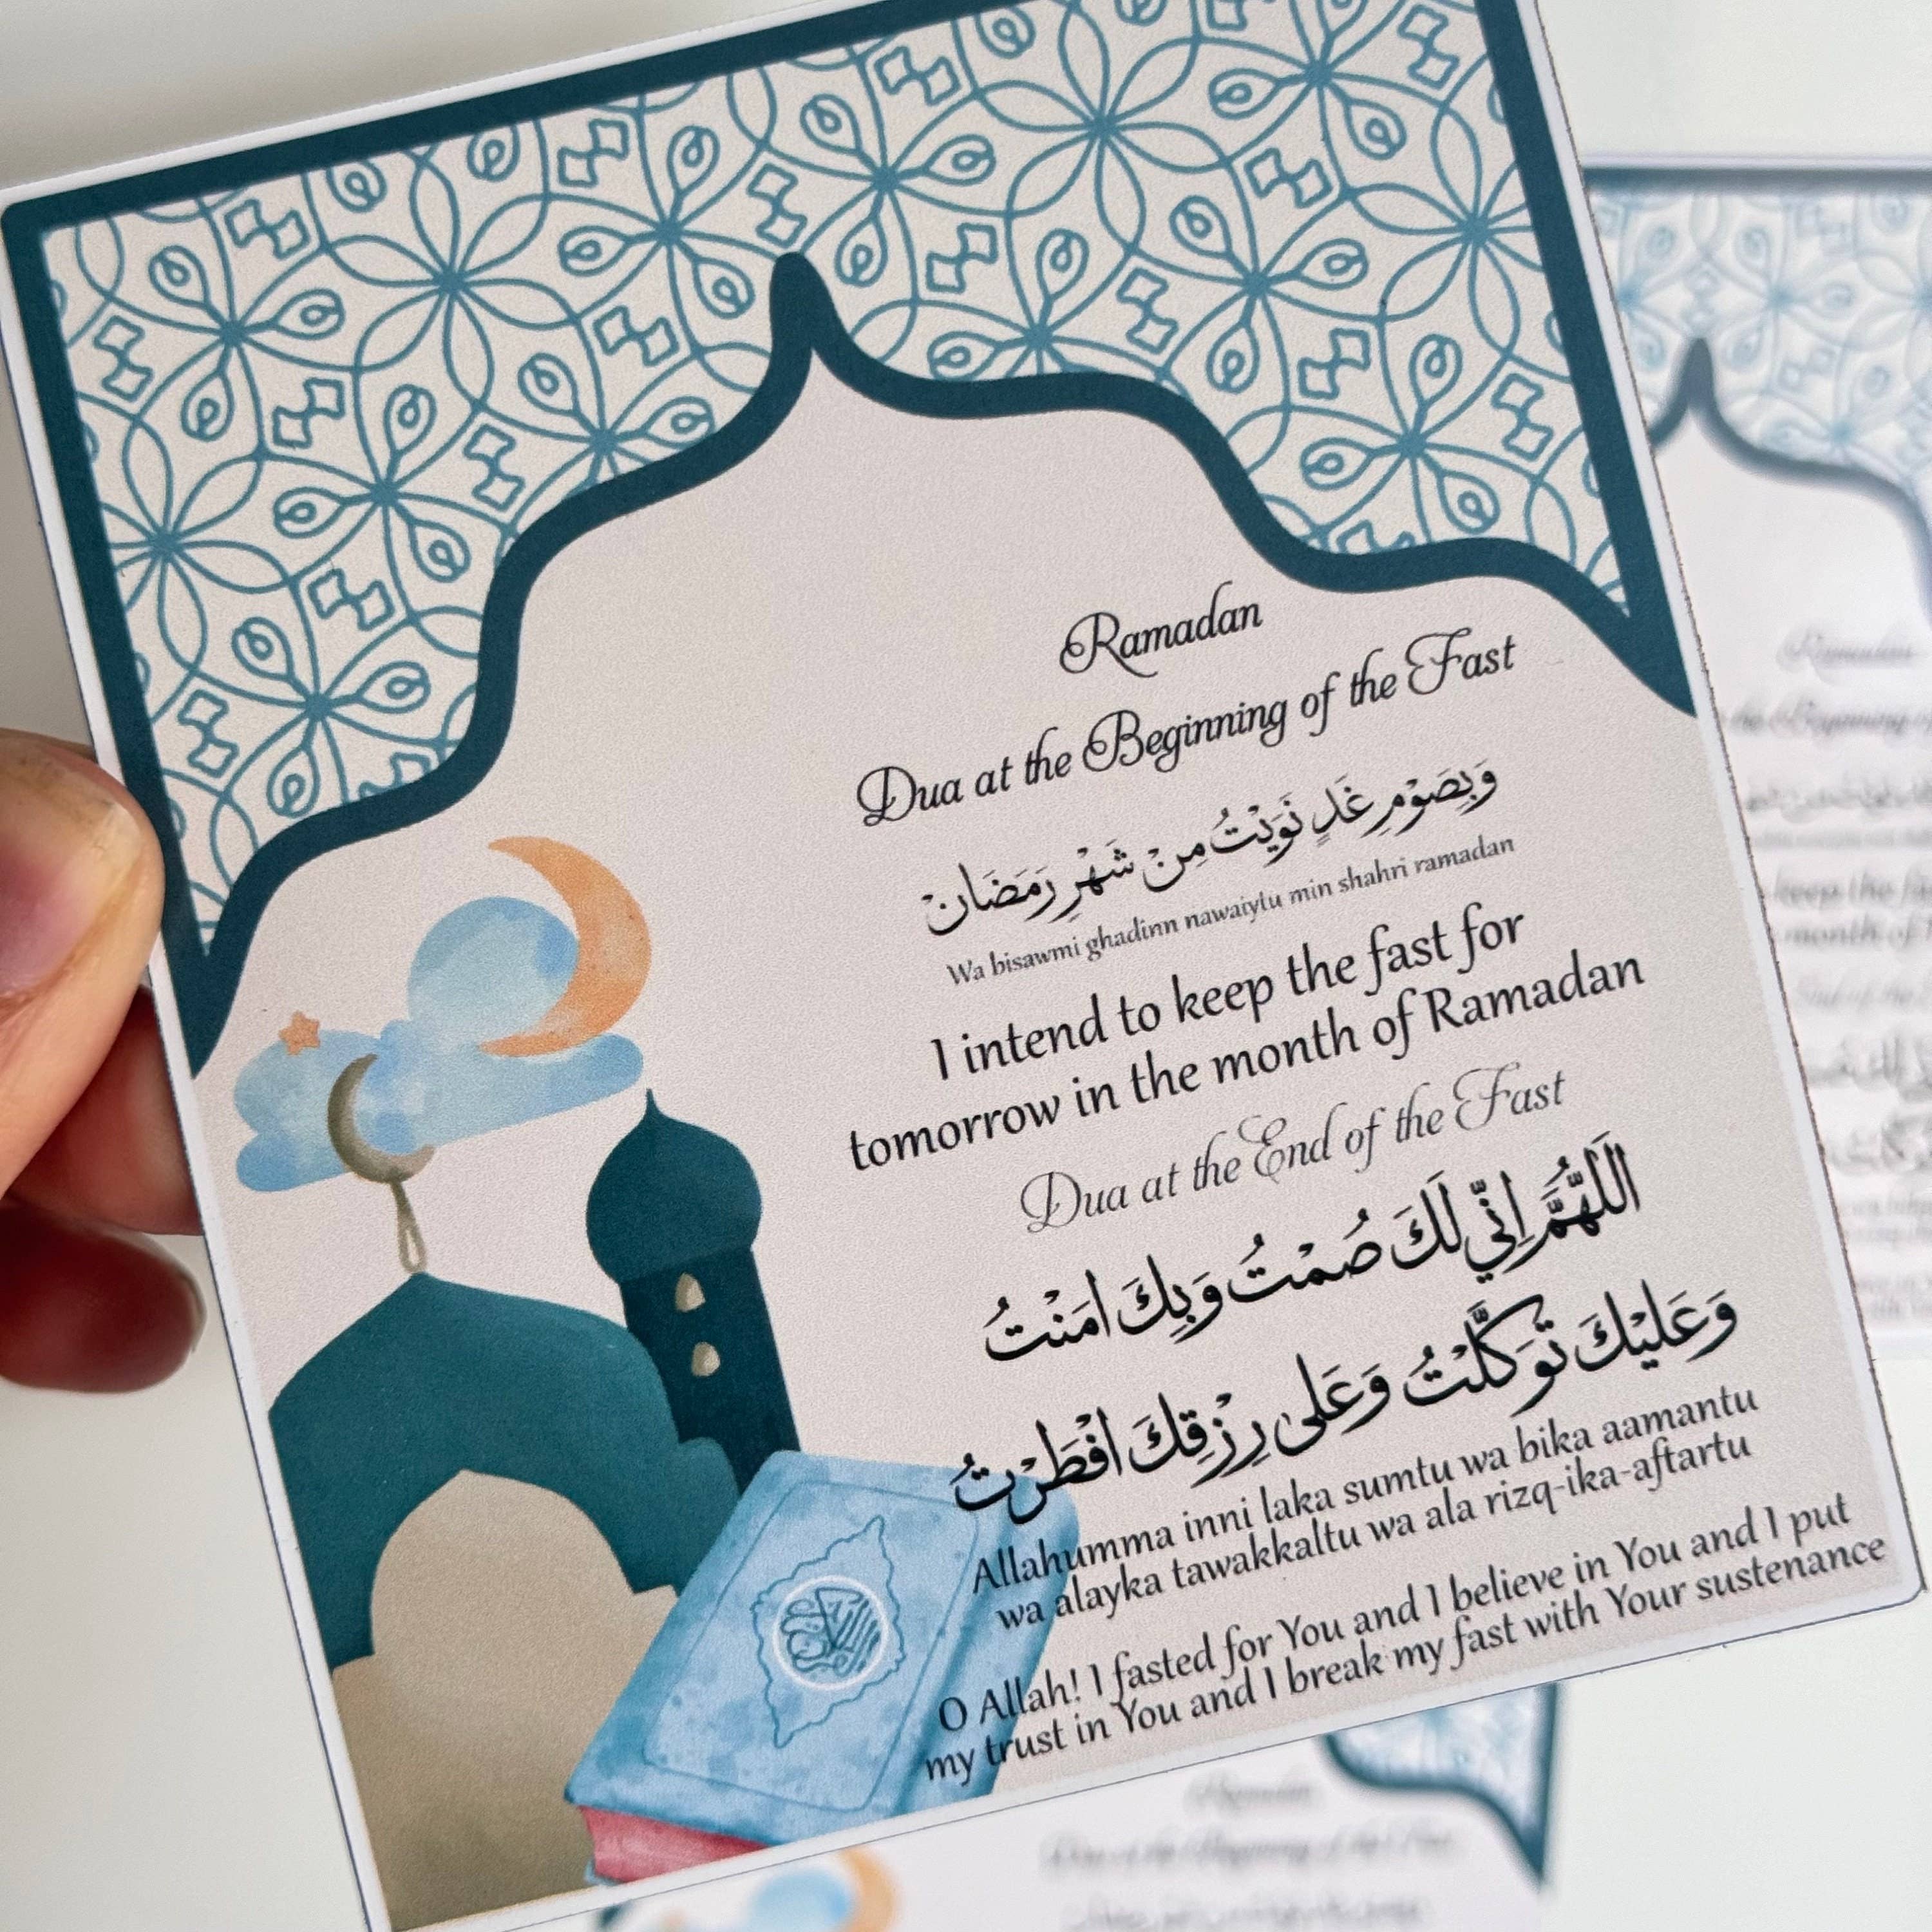 Ramadan
Dua at the Beginning of the Fast
وَبِصَوْمِ غَدٍ نَوَيْتُ مِنْ شَهْرِ رَمَضَانْ
Wa bisawmi ghadinn nawaiytu min shahri ramadan
I intend to keep the fast for
tomorrow in the month of Ramadan
Dua at the End of the Fast
اَللّهُمَّ اِنِّي لَكَ صُمْتُ وَبِكَ امَنْتُ
وَعَلَيْكَ تَوَكَّلْتُ وَعَلى رِزْقِكَ اَفْطَرْتُ
Allahumma inni laka sumtu wa bika aamantu
wa alayka tawakkaltu wa ala rizq-ika-aftartu
O Allah! I fasted for You and I believe in You and I put
my trust in You and I break my fast with Your sustenance